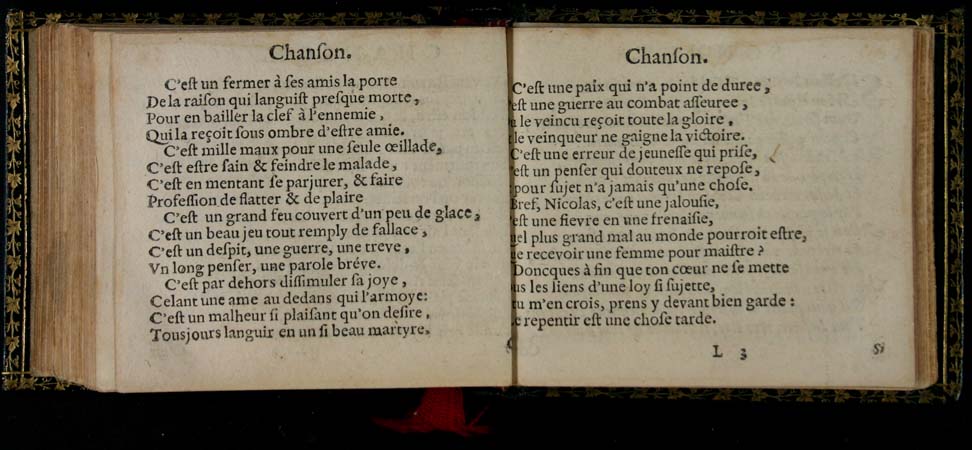 Chanſon.
C'eſt un fermer à ſes amis la porte
De la raiſon qui languiſt preſque morte,
Pour en bailler la clef à l'ennemie,
Qui la reçoit ſous ombre d'eſtre amie.
C'eſt mille maux pour une ſeule œillade,
C'eſt eſtre ſain & feindre le malade,
C'eſt en mentant ſe parjurer, & faire
Profeſſion de flatter & de plaire
C'eſt un grand feu couvert d'un peu de glace,
C'eſt un beau jeu tout remply de fallace,
C'eſt un deſpit, une guerre, une treve,
Vn long penſer, une parole bréve.
C'eſt par dehors diſſimuler ſa joye,
Celant une ame au dedans qui l'armoye:
C'eſt un malheur ſi plaiſant qu'on deſire,
Tousjours languir en un ſi beau martyre.
Chanſon.
C'eſt une paix qui n'a point de duree,
eſt une guerre au combat aſſeuree,
le veincu reçoit toute la gloire,
le veinqueur ne gaigne la victoire.
C'eſt une erreur de jeuneſſe qui priſe,
eſt un penſer qui douteux ne repoſe,
pour ſujet n'a jamais qu'une choſe.
Bref, Nicolas, c'eſt une jalouſie,
eſt une fievre en une frenaiſie,
el plus grand mal au monde pourroit eſtre,
e recevoir une femme pour maiſtre?
Doncques à fin que ton cœur ne ſe mette
us les liens d'une loy ſi ſujette,
tu m'en crois, prens y devant bien garde:
e repentir eſt une choſe tarde.
L 3 Si